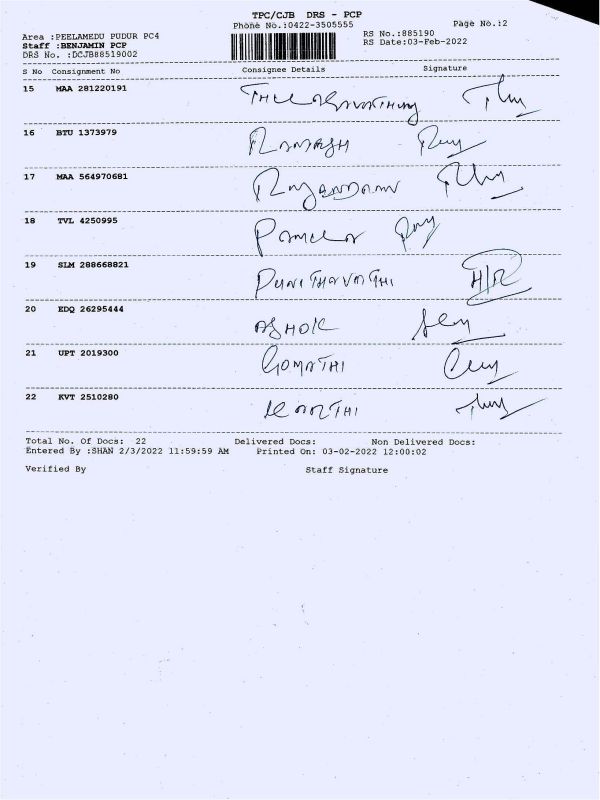 TPC/CJB DRS - PCP
Phone No.:0422-3505555
Page No.:2
Area :PEELAMEDU PUDUR PC4
RS No.:885190
Staff :BENJAMIN PCP
RS Date:03-Feb-2022
DRS No. :DCJB88519002
S No Consignment No Consignee Details Signature
15 MAA 281220191
16 BTU 1373979 RAMASH
17 MAA 564970681
18 TVL 4250995 PAMELA
19 SLM 288668821 PUNITHAVATHI
20 EDQ 26295444 ASHOK
21 UPT 2019300 GOMATHI
22 KVT 2510280 KARTHI
Total No. Of Docs: 22 Delivered Docs: Non Delivered Docs:
Entered By :SHAN 2/3/2022 11:59:59 AM Printed On: 03-02-2022 12:00:02
Verified By Staff Signature